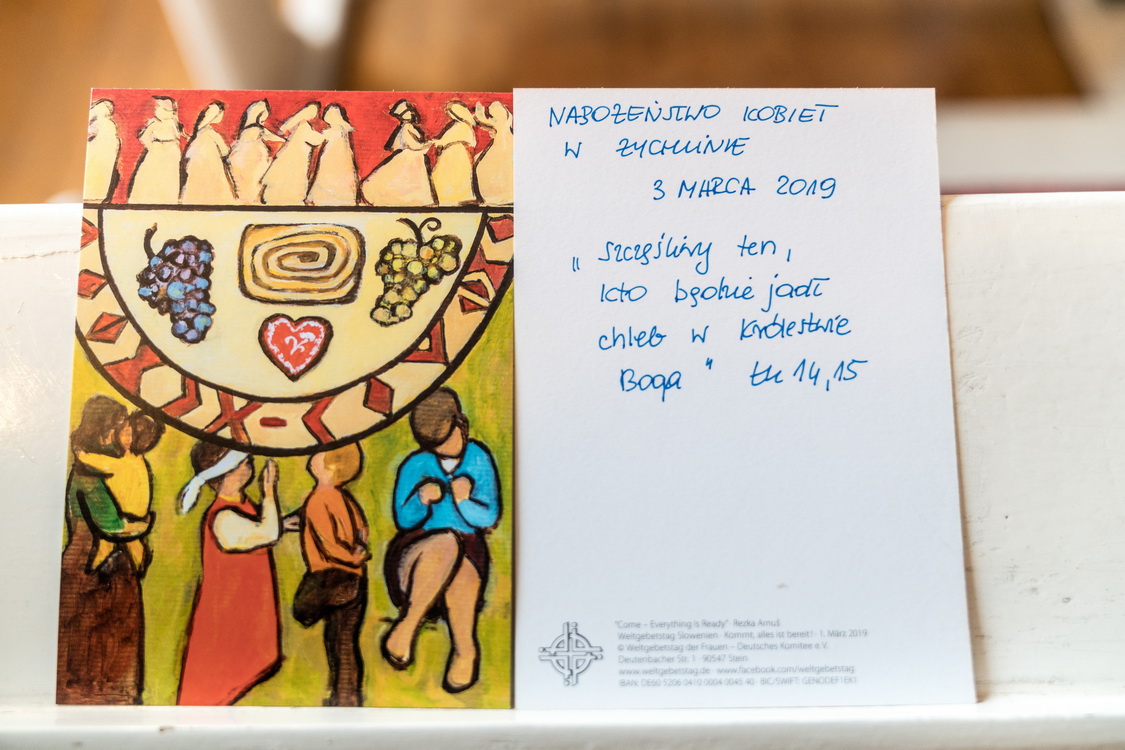 NABOŻEŃSTWO KOBIET
W ŻYCHLINIE
3 MARCA 2019
„ Szczęśliwy ten,
kto będzie jadł
chleb w Królestwie
Boga " Łk 14,15
"Come – Everything is Ready" · Rezka Arnuš
Weltgebetstag Slowenien · Kommt, alles ist bereit! · 1. März 2019
© Weltgebetstag der Frauen – Deutsches Komitee e.V.
Deutenbacher Str. 1 · 90547 Stein
www.weltgebetstag.de · www.facebook.com/weltgebetstag
IBAN: DE60 5206 0410 0004 0045 40 · BIC/SWIFT: GENODEF1EK1